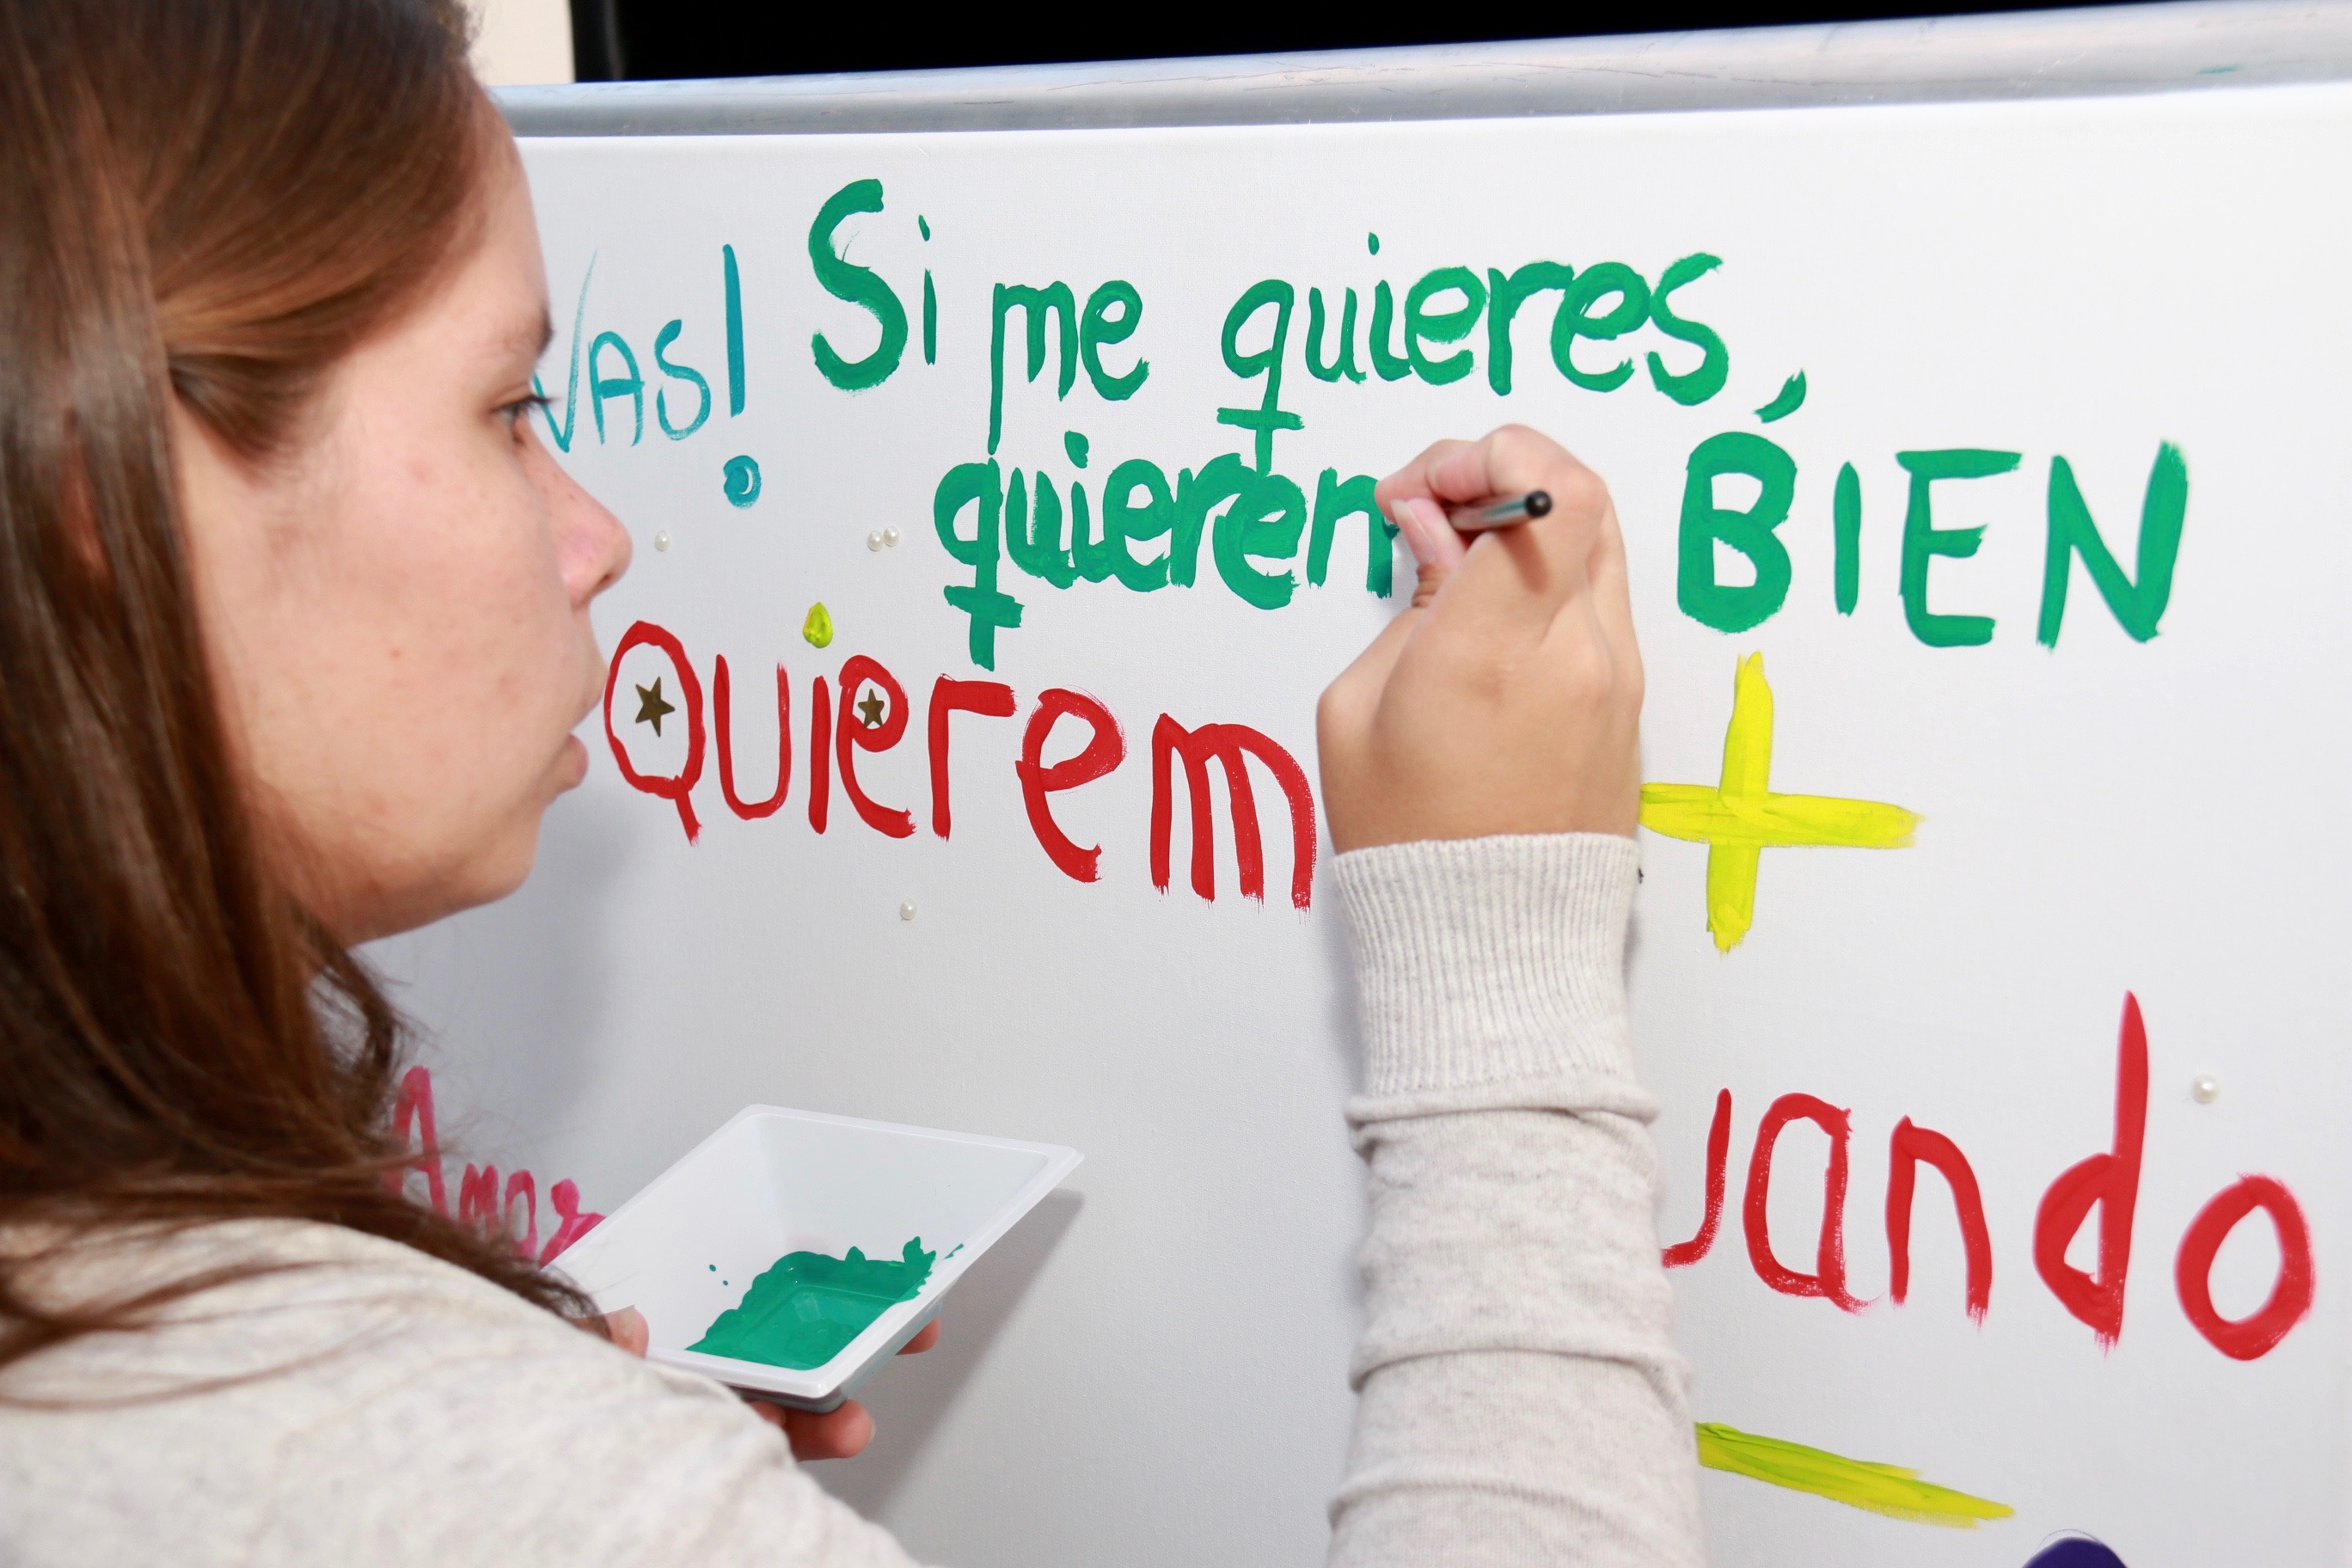 VAS!
Si me quieres,
quieren BIEN
Quierem
+
Amor
uando
-